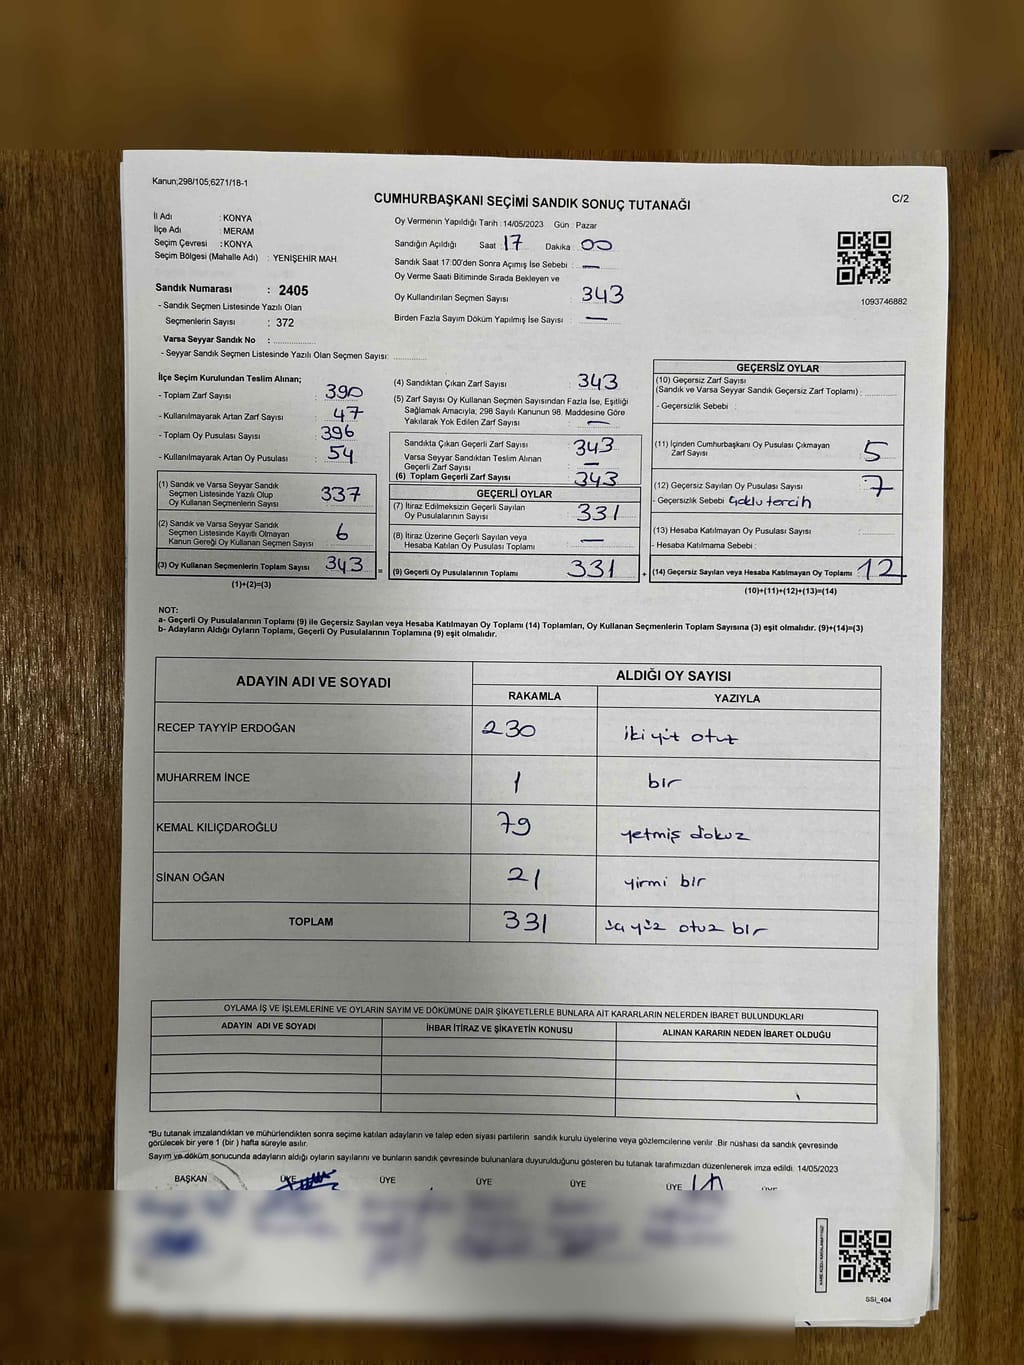 Kanun;298/105;6271/18-1
CUMHURBAŞKANI SEÇİMİ SANDIK SONUÇ TUTANAĞI
C/2
İl Adı : KONYA
İlçe Adı : MERAM
Seçim Çevresi : KONYA
Seçim Bölgesi (Mahalle Adı) : YENIŞEHİR MAH.
Sandık Numarası : 2405
- Sandık Seçmen Listesinde Yazılı Olan
Seçmenlerin Sayısı : 372
Varsa Seyyar Sandık No :
- Seyyar Sandık Seçmen Listesinde Yazılı Olan Seçmen Sayısı:
Oy Vermenin Yapıldığı Tarih : 14/05/2023 Gün : Pazar
Sandığın Açıldığı Saat : 17 Dakika : 00
Sandık Saat 17:00'den Sonra Açımış İse Sebebi : —
Oy Verme Saati Bitiminde Sırada Bekleyen ve
Oy Kullandırılan Seçmen Sayısı 343
Birden Fazla Sayım Döküm Yapılmış İse Sayısı : —
1093746882
İlçe Seçim Kurulundan Teslim Alınan;
- Toplam Zarf Sayısı : 390
- Kullanılmayarak Artan Zarf Sayısı : 47
- Toplam Oy Pusulası Sayısı : 396
- Kullanılmayarak Artan Oy Pusulası : 54
(1) Sandık ve Varsa Seyyar Sandık
Seçmen Listesinde Yazılı Olup
Oy Kullanan Seçmenlerin Sayısı : 337
(2) Sandık ve Varsa Seyyar Sandık
Seçmen Listesinde Kayıtlı Olmayan
Kanun Gereği Oy Kullanan Seçmen Sayısı : 6
(3) Oy Kullanan Seçmenlerin Toplam Sayısı : 343
(1)+(2)=(3)
(4) Sandıktan Çıkan Zarf Sayısı : 343
(5) Zarf Sayısı Oy Kullanan Seçmen Sayısından Fazla İse, Eşitliği
Sağlamak Amacıyla; 298 Sayılı Kanunun 98. Maddesine Göre
Yakılarak Yok Edilen Zarf Sayısı : —
Sandıkta Çıkan Geçerli Zarf Sayısı 343
Varsa Seyyar Sandıktan Teslim Alınan
Geçerli Zarf Sayısı —
(6) Toplam Geçerli Zarf Sayısı 343
GEÇERLİ OYLAR
(7) İtiraz Edilmeksizin Geçerli Sayılan
Oy Pusulalarının Sayısı : 331
(8) İtiraz Üzerine Geçerli Sayılan veya
Hesaba Katılan Oy Pusulası Toplamı : —
= (9) Geçerli Oy Pusulalarının Toplamı : 331 +
GEÇERSİZ OYLAR
(10) Geçersiz Zarf Sayısı
(Sandık ve Varsa Seyyar Sandık Geçersiz Zarf Toplamı) :
- Geçersizlik Sebebi :
(11) İçinden Cumhurbaşkanı Oy Pusulası Çıkmayan
Zarf Sayısı : 5
(12) Geçersiz Sayılan Oy Pusulası Sayısı : 7
- Geçersizlik Sebebi : Çoklu tercih
(13) Hesaba Katılmayan Oy Pusulası Sayısı :
- Hesaba Katılmama Sebebi :
(14) Geçersiz Sayılan veya Hesaba Katılmayan Oy Toplamı : 12
(10)+(11)+(12)+(13)=(14)
NOT:
a- Geçerli Oy Pusulalarının Toplamı (9) ile Geçersiz Sayılan veya Hesaba Katılmayan Oy Toplamı (14) Toplamları, Oy Kullanan Seçmenlerin Toplam Sayısına (3) eşit olmalıdır. (9)+(14)=(3)
b- Adayların Aldığı Oyların Toplamı, Geçerli Oy Pusulalarının Toplamına (9) eşit olmalıdır.
ADAYIN ADI VE SOYADI ALDIĞI OY SAYISI
RAKAMLA YAZIYLA
RECEP TAYYİP ERDOĞAN 230 iki yüz otuz
MUHARREM İNCE 1 bir
KEMAL KILIÇDAROĞLU 79 yetmiş dokuz
SİNAN OĞAN 21 yirmi bir
TOPLAM 331 üç yüz otuz bir
OYLAMA İŞ VE İŞLEMLERİNE VE OYLARIN SAYIM VE DÖKÜMÜNE DAİR ŞİKAYETLERLE BUNLARA AİT KARARLARIN NELERDEN İBARET BULUNDUKLARI
ADAYIN ADI VE SOYADI İHBAR İTİRAZ VE ŞİKAYETİN KONUSU ALINAN KARARIN NEDEN İBARET OLDUĞU
*Bu tutanak imzalandıktan ve mühürlendikten sonra seçime katılan adayların ve talep eden siyasi partilerin sandık kurulu üyelerine veya gözlemcilerine verilir .Bir nüshası da sandık çevresinde
görülecek bir yere 1 (bir ) hafta süreyle asılır.
Sayım ve döküm sonucunda adayların aldığı oyların sayılarını ve bunların sandık çevresinde bulunanlara duyurulduğunu gösteren bu tutanak tarafımızdan düzenlenerek imza edildi. 14/05/2023
BAŞKAN ÜYE ÜYE ÜYE ÜYE ÜYE
SSI_404